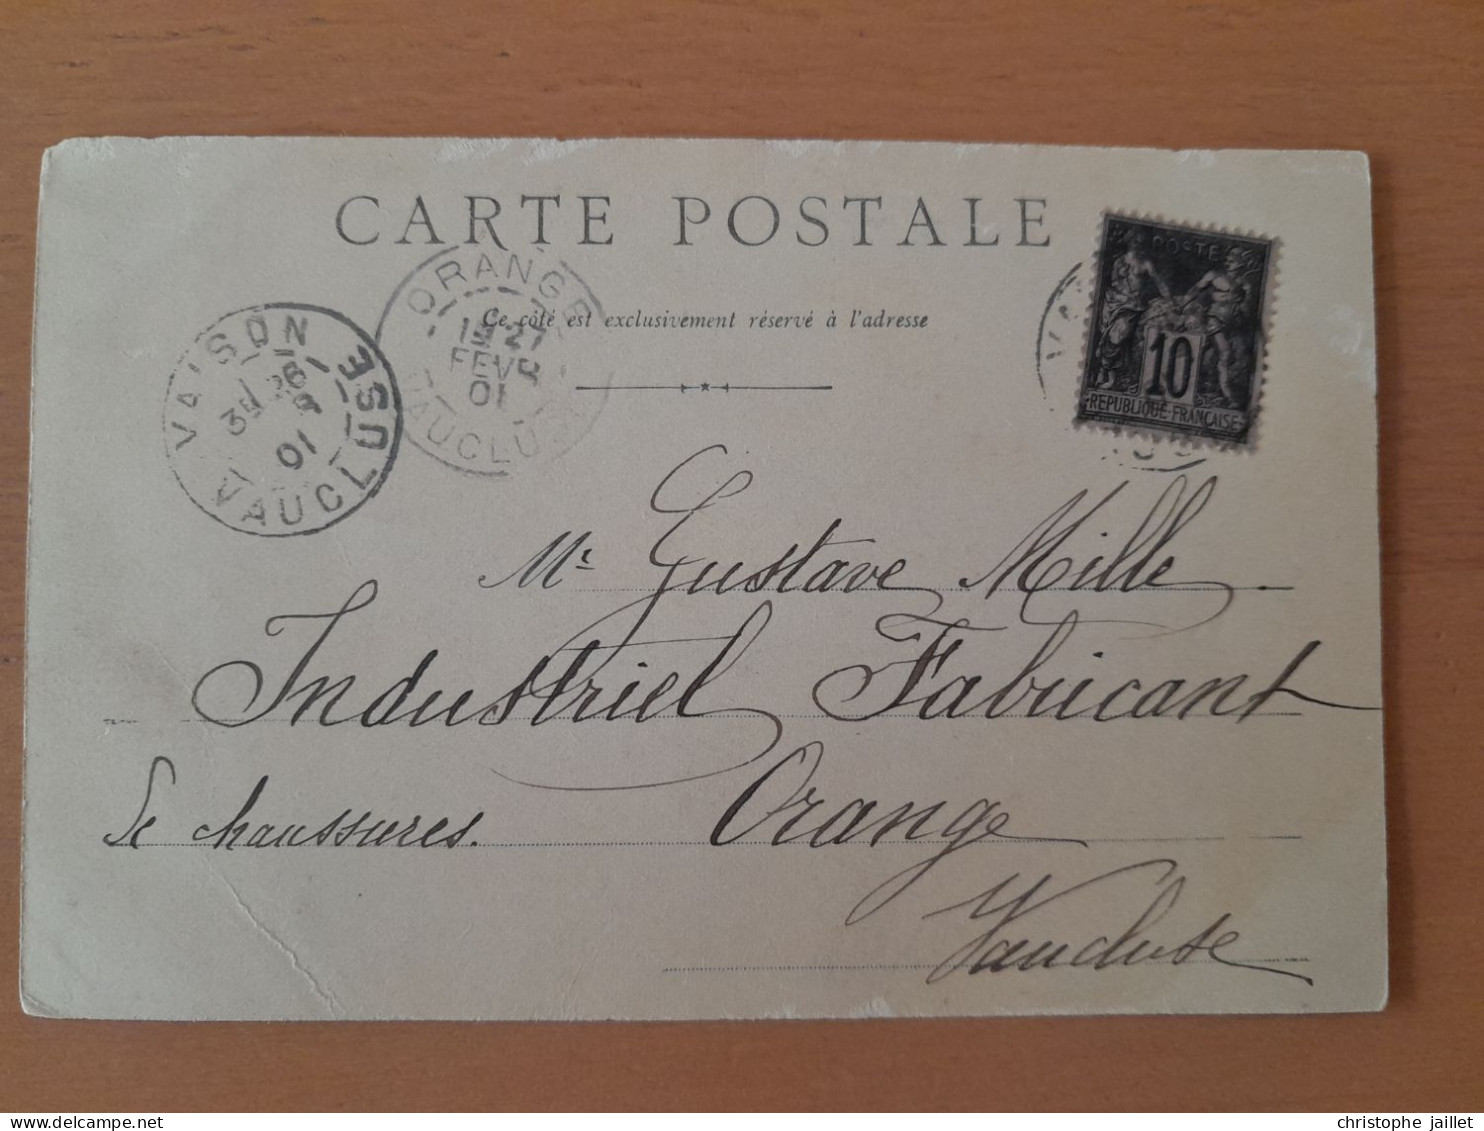 CARTE POSTALE
Ce côté est exclusivement réservé à l'adresse
ORANGE
27
FEVR
01
VAUCLUSE
VAISON
26
01
VAUCLUSE
POSTE
10
REPUBLIQUE FRANÇAISE
Mr Gustave Mille
Industriel Fabricant
de chaussures. Orange
Vaucluse
christophe jaillet